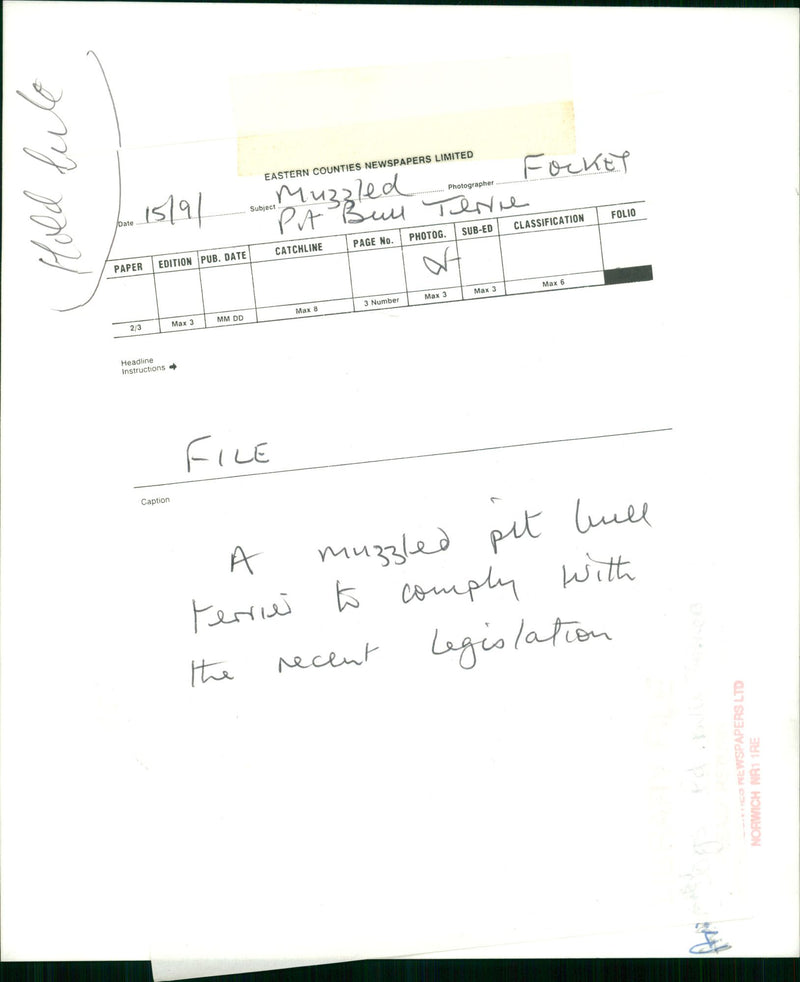 EASTERN COUNTIES NEWSPAPERS LIMITED
Date 15/9/ Subject Muzzled Photographer FOCKET
Pit Bull Terrie
PAPER EDITION PUB. DATE CATCHLINE PAGE No. PHOTOG. SUB-ED CLASSIFICATION FOLIO
2/3 Max 3 MM DD Max 8 3 Number Max 3 Max 3 Max 6
Headline
Instructions
FILE
Caption
A muzzled pit bull
terrier to comply with
the recent legislation
Hold
NEWSPAPERS LTD
NORWICH NR1 1RE